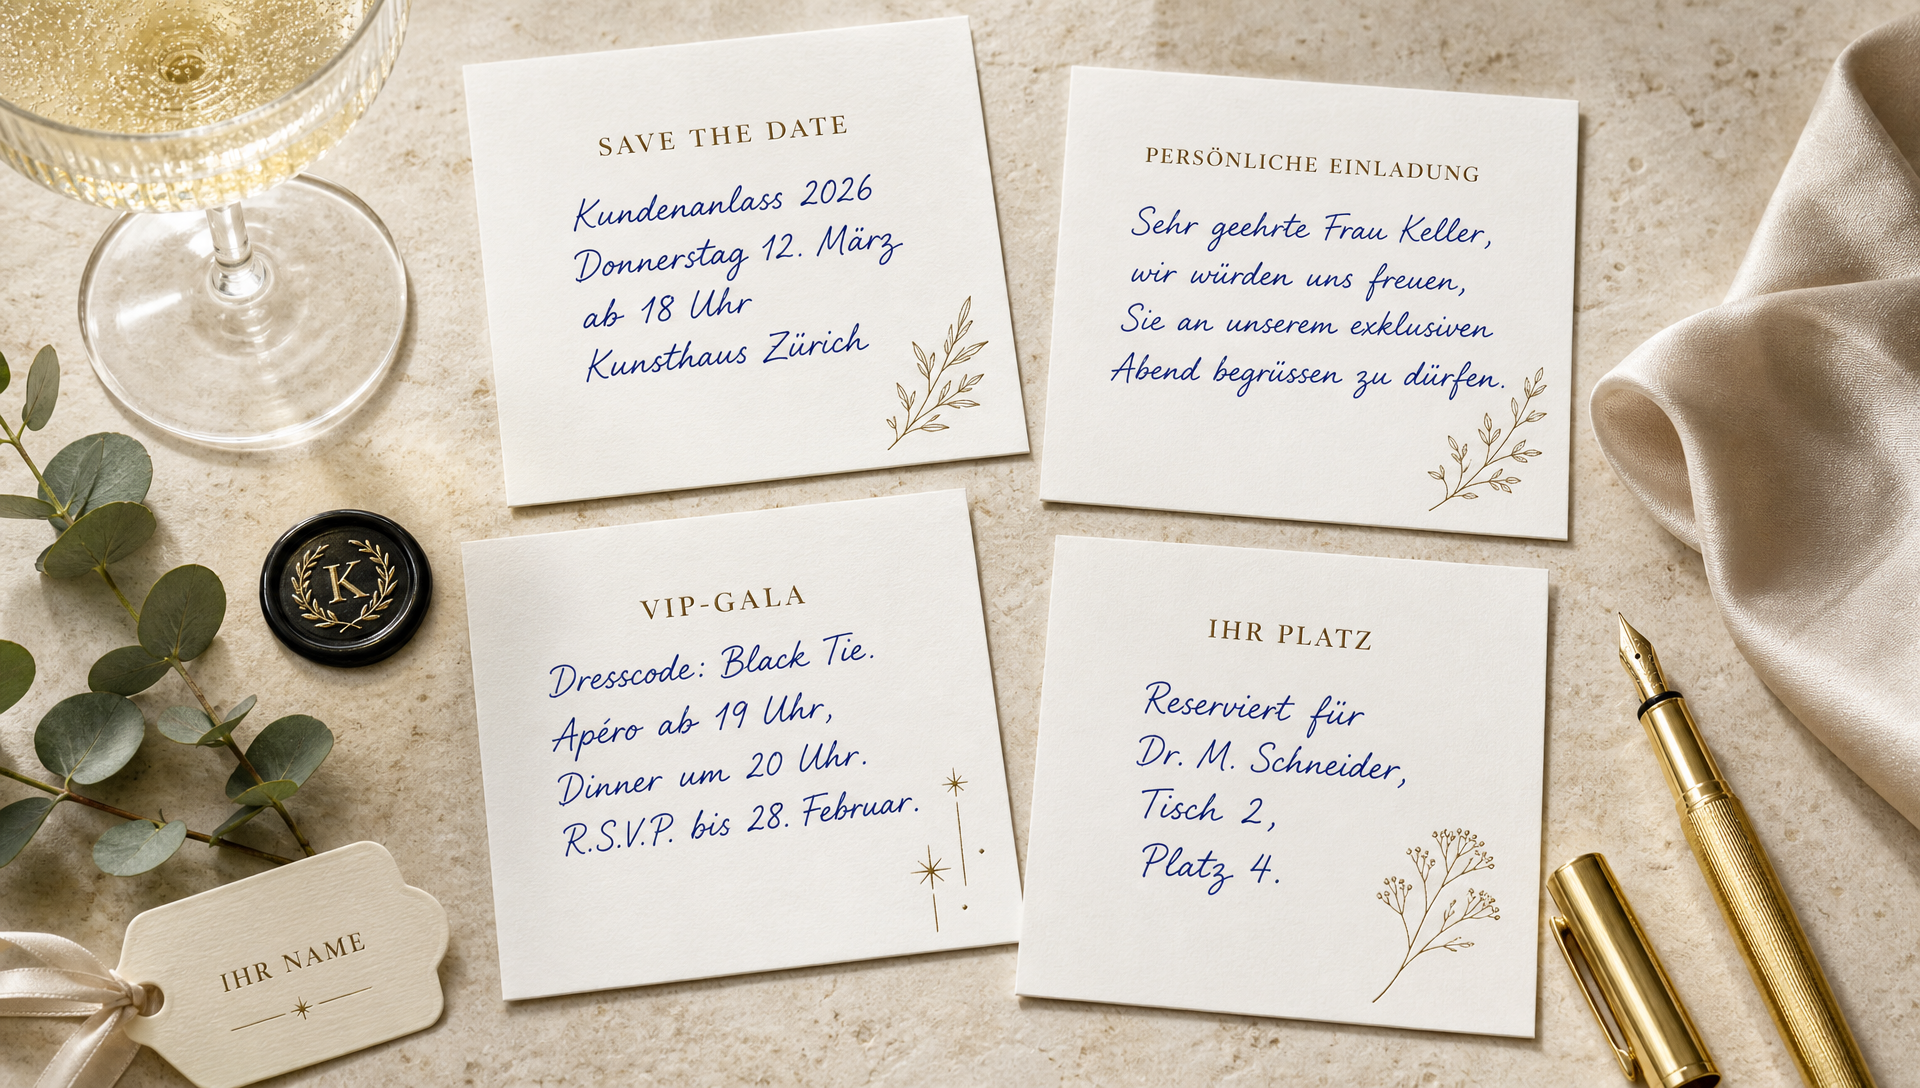 SAVE THE DATE
Kundenanlass 2026
Donnerstag 12. März
ab 18 Uhr
Kunsthaus Zürich
PERSÖNLICHE EINLADUNG
Sehr geehrte Frau Keller,
wir würden uns freuen,
Sie an unserem exklusiven
Abend begrüssen zu dürfen.
K
VIP-GALA
Dresscode: Black Tie.
Apéro ab 19 Uhr,
Dinner um 20 Uhr.
R.S.V.P. bis 28. Februar.
IHR PLATZ
Reserviert für
Dr. M. Schneider,
Tisch 2,
Platz 4.
IHR NAME